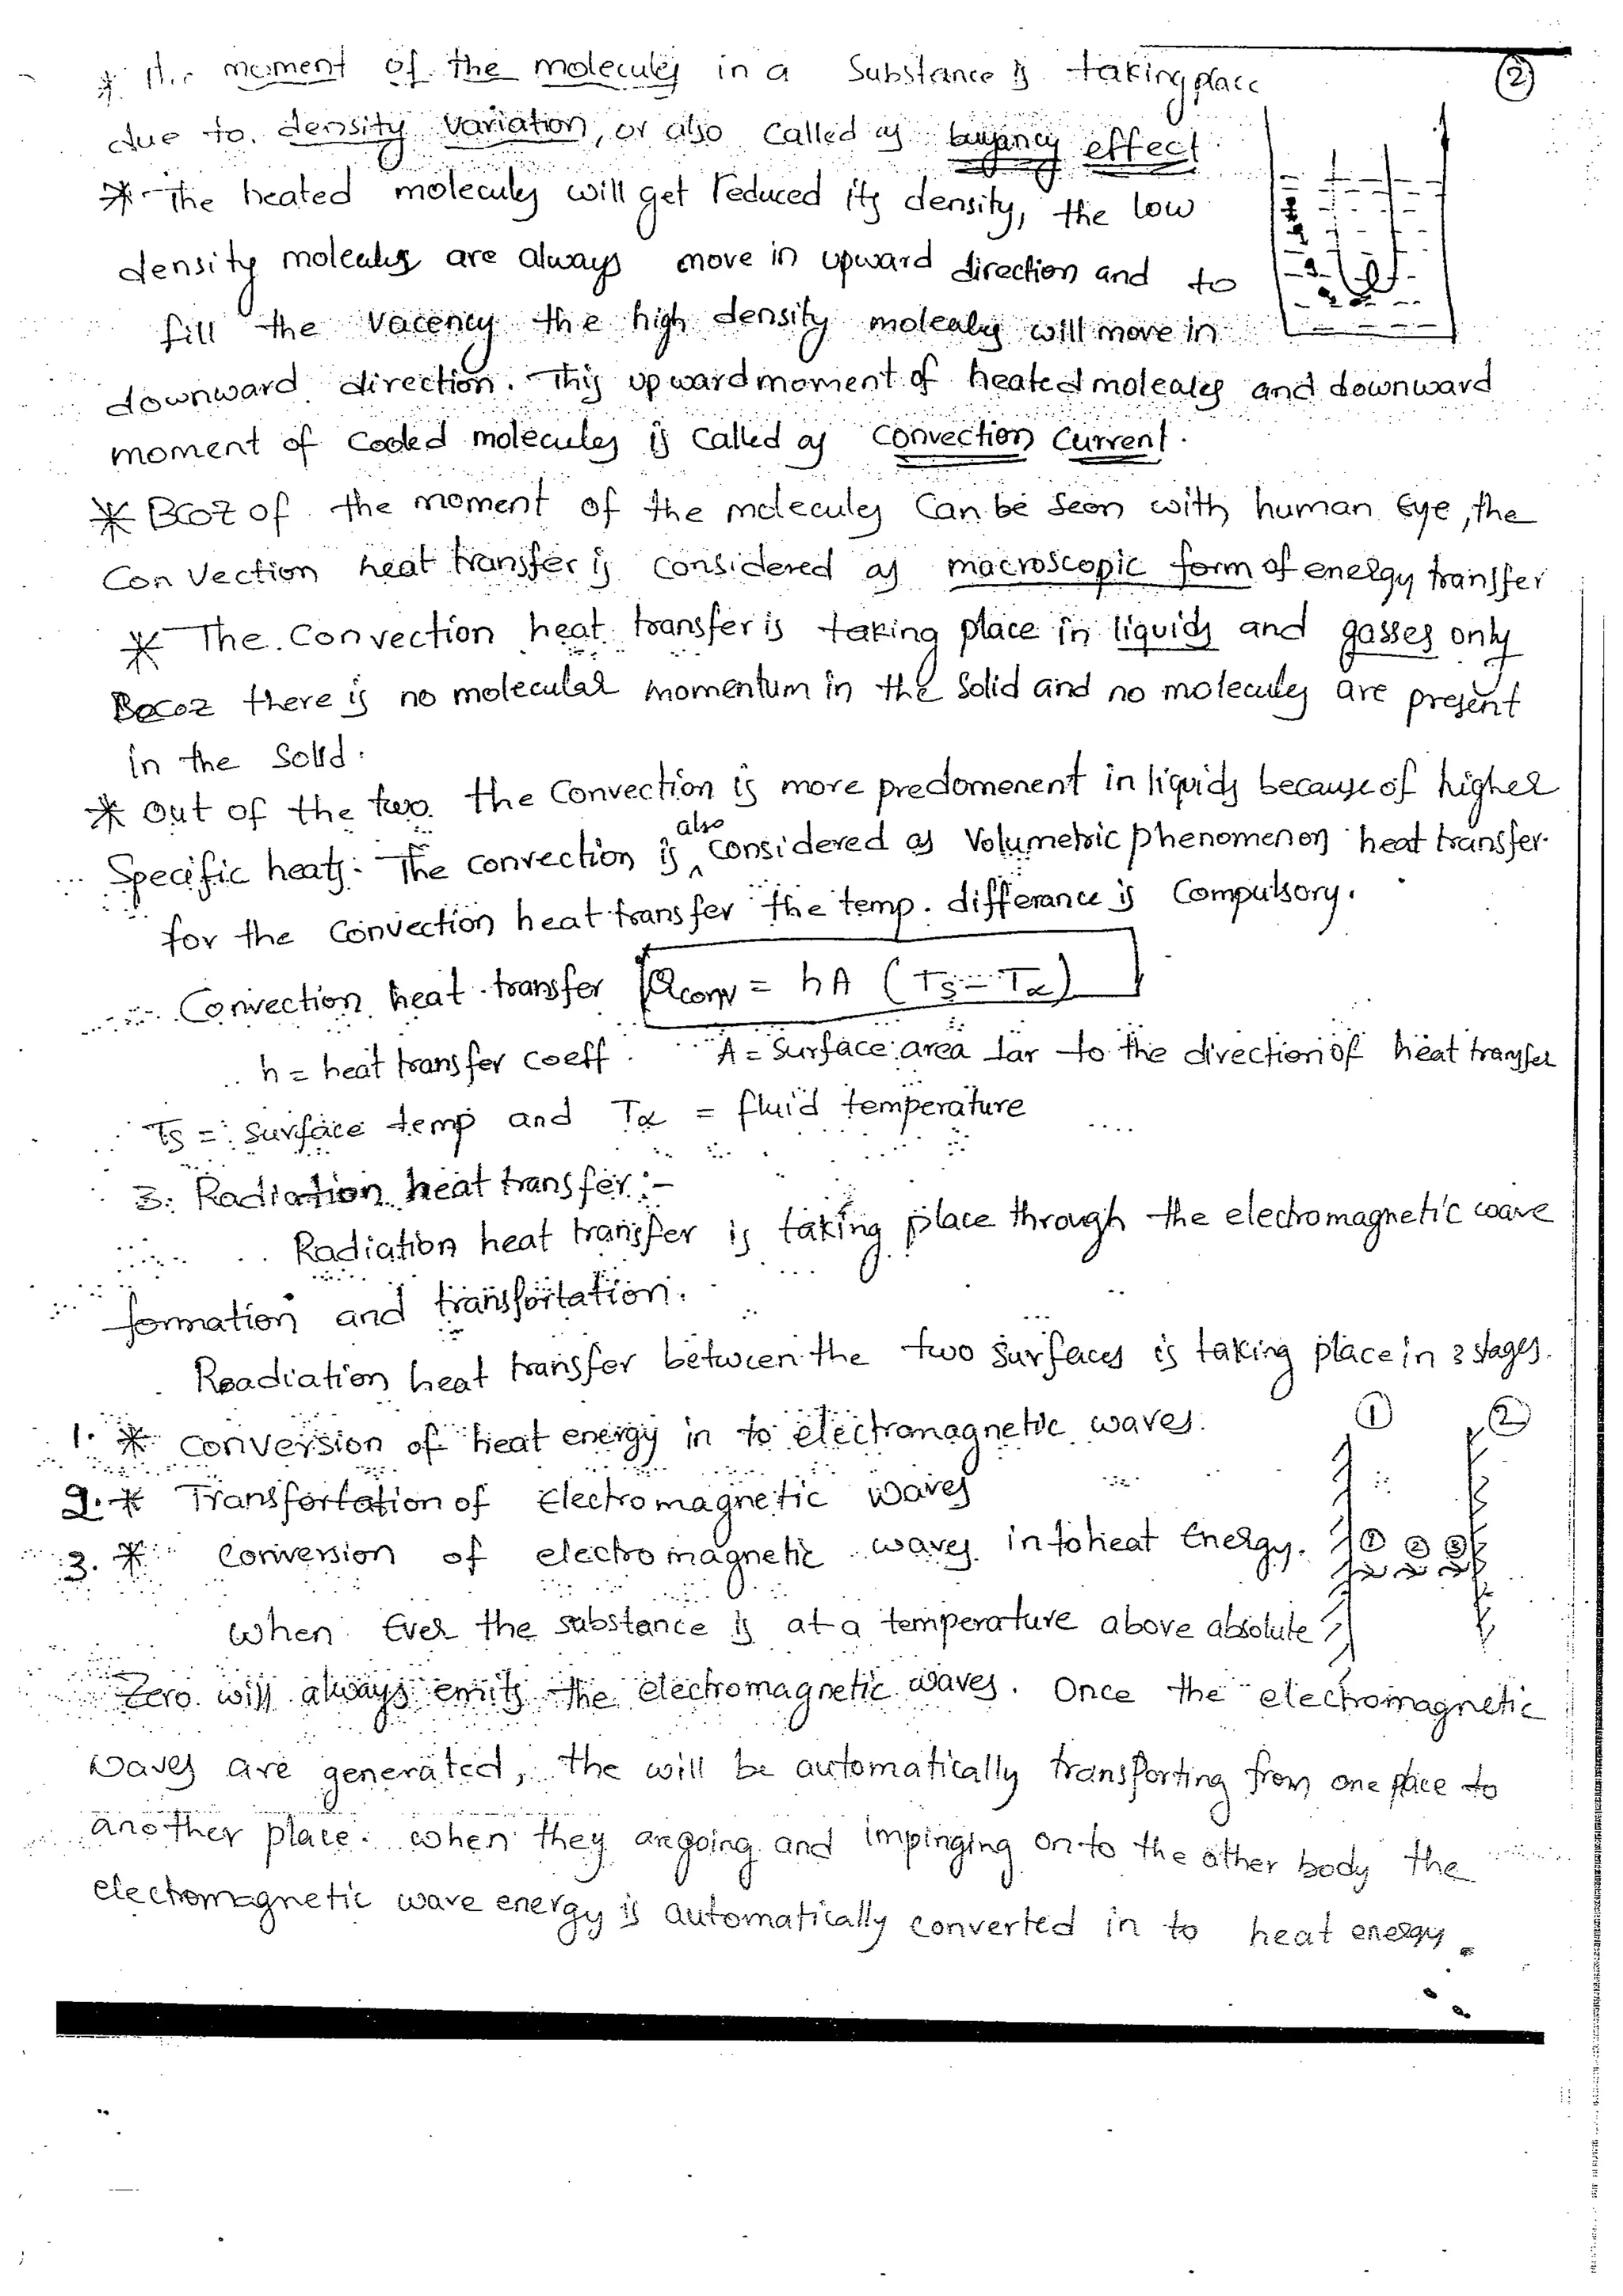 * The moment of the molecules in a Substance is taking place
②
due to density variation, or also called as buyancy effect.
* The heated molecules will get reduced its density, the low
density molecules are always move in upward direction and to
fill the vacency the high density molecules will move in
downward direction. This upward moment of heated molecules and downward
moment of cooled molecules is called as convection current.
* Bcoz of the moment of the molecules can be seen with human Eye, the
Convection heat transfer is considered as macroscopic form of energy transfer
* The convection heat transfer is taking place in liquids and gasses only
Becoz there is no molecular momentum in the solid and no molecules are present
in the solid.
* Out of the two the convection is more predomenent in liquids because of higher
also
Specific heats. The convection is ^ considered as volumetric phenomenon heat transfer.
for the convection heat transfer the temp. differance is compulsory.
Convection heat transfer Qconv = hA (Ts - Tα)
h = heat transfer coeff. A = surface area ⊥ar to the direction of heat transfer
Ts = surface temp and Tα = fluid temperature
3. Radiation heat transfer:-
Radiation heat transfer is taking place through the electromagnetic wave
formation and transfortation.
Readiation heat transfer between the two surfaces is taking place in 3 stages.
① ②
1. * conversion of heat energy in to electromagnetic waves.
2. * Transfortation of Electromagnetic waves
3. * conversion of electromagnetic waves in to heat Energy.
① ② ③
when Ever the substance is at a temperature above absolute
Zero will always emits the electromagnetic waves. Once the electromagnetic
waves are generated, the will be automatically transporting from one place to
another place. when they are going and impinging on to the other body the
electromagnetic wave energy is automatically converted in to heat energy.